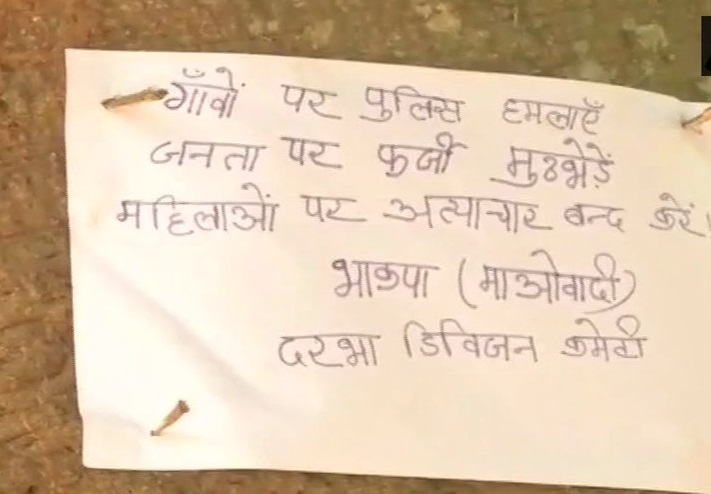 गाँवों पर पुलिस हमलाएँ
जनता पर फर्जी मुठभेड़ें
महिलाओं पर अत्याचार बन्द करें।
भाकपा (माओवादी)
दरभा डिविजन कमेटी